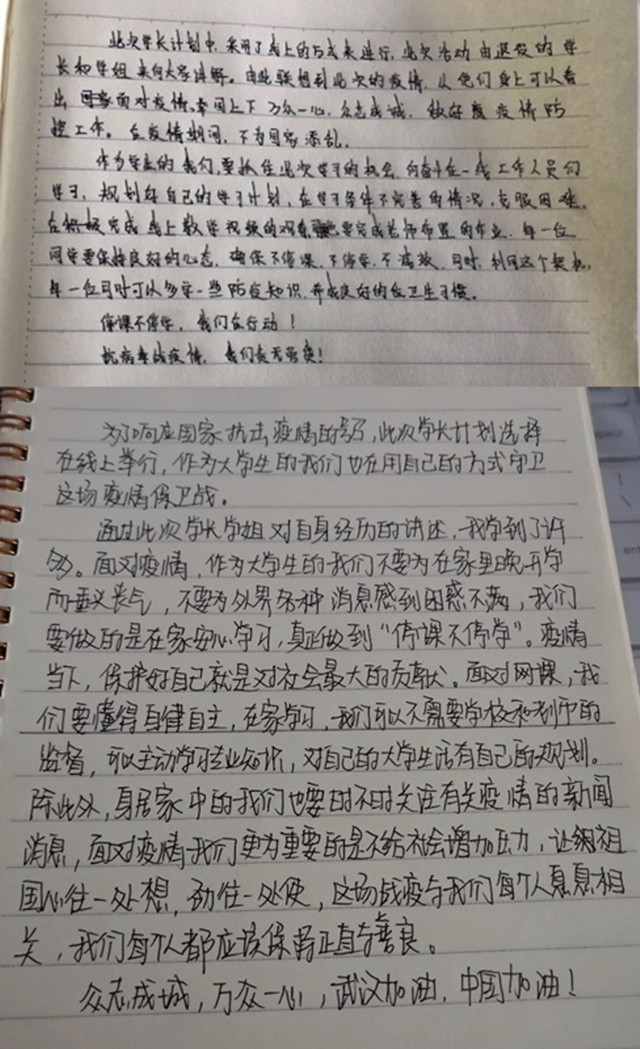 此次学长计划中,采用了线上的方式来进行,此次活动由退役的学
长和学姐来向大家讲解。由此联想到此次的疫情,从他们身上可以看
出国家面对疫情,举国上下万众一心,众志成诚,做好度疫情防
控工作。在疫情期间,不为国家添乱。
作为学生的我们,要抓住此次学习的机会,向奋斗在一线工作人员们
学习,规划好自己的学习计划,在学习条件不完善的情况,克服困难,
在积极完成线上教学视频的观看要完成老师布置的作业,每一位
同学要保持良好的心态,确保不停课,不停学,不落教,同时,利用这个契机,
每一位同时可以多学一些防疫知识,养成良好的卫生习惯。
停课不停学,我们在行动!
抗病毒战疫情,我们责无旁贷!
为了响应国家抗击疫情的号召,此次学长计划选择
在线上举行,作为大学生的我们也在用自己的方式守卫
这场疫情保卫战。
通过此次学长学姐对自身经历的讲述,我学到了许
多。面对疫情,作为大学生的我们不要为在家里晚开学
而垂头丧气,不要为外界各种消息感到困惑不满,我们
要做的是在家安心学习,真正做到“停课不停学”。疫情
当下,保护好自己就是对社会最大的贡献。面对网课,我
们要懂得自律自主,在家学习,我们可以不需要学校和老师的
监督,可以主动学习专业知识,对自己的大学生活有自己的规划。
除此外,身居家中的我们也要时不时关注有关疫情的新闻
消息,面对疫情我们更为重要的是不给社会增加压力,让祖
国心往一处想,劲往一处使,这场战疫与我们每个人息息相
关,我们每个人都应该保持正直与善良。
众志成城,万众一心,武汉加油,中国加油!